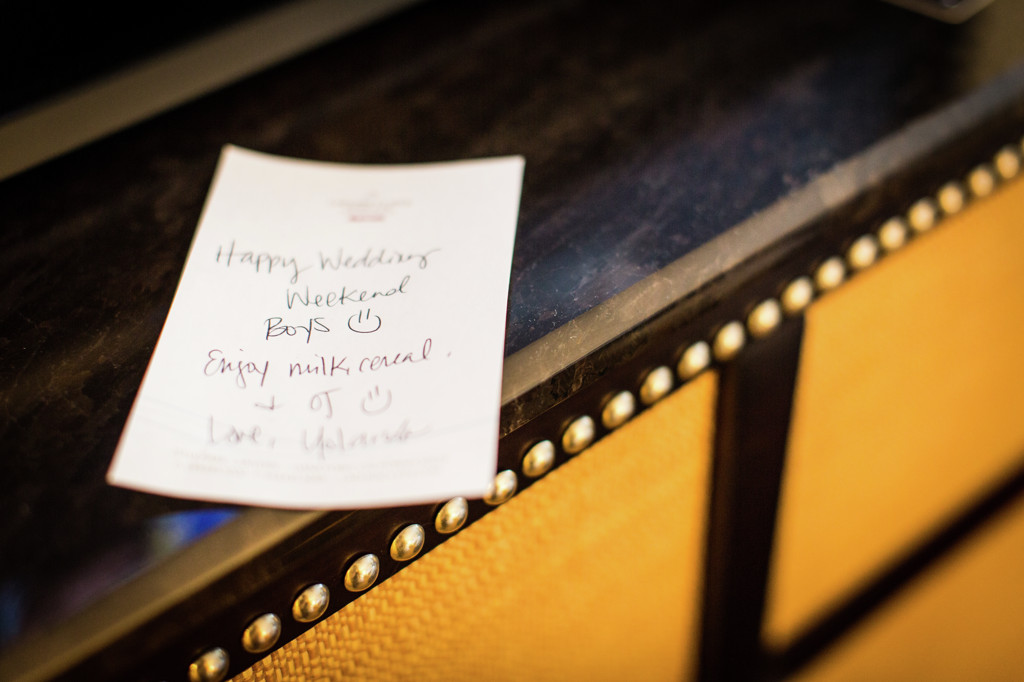 Happy Wedding
Weekend
Boys
Enjoy milk, cereal.
+ OJ
Love,